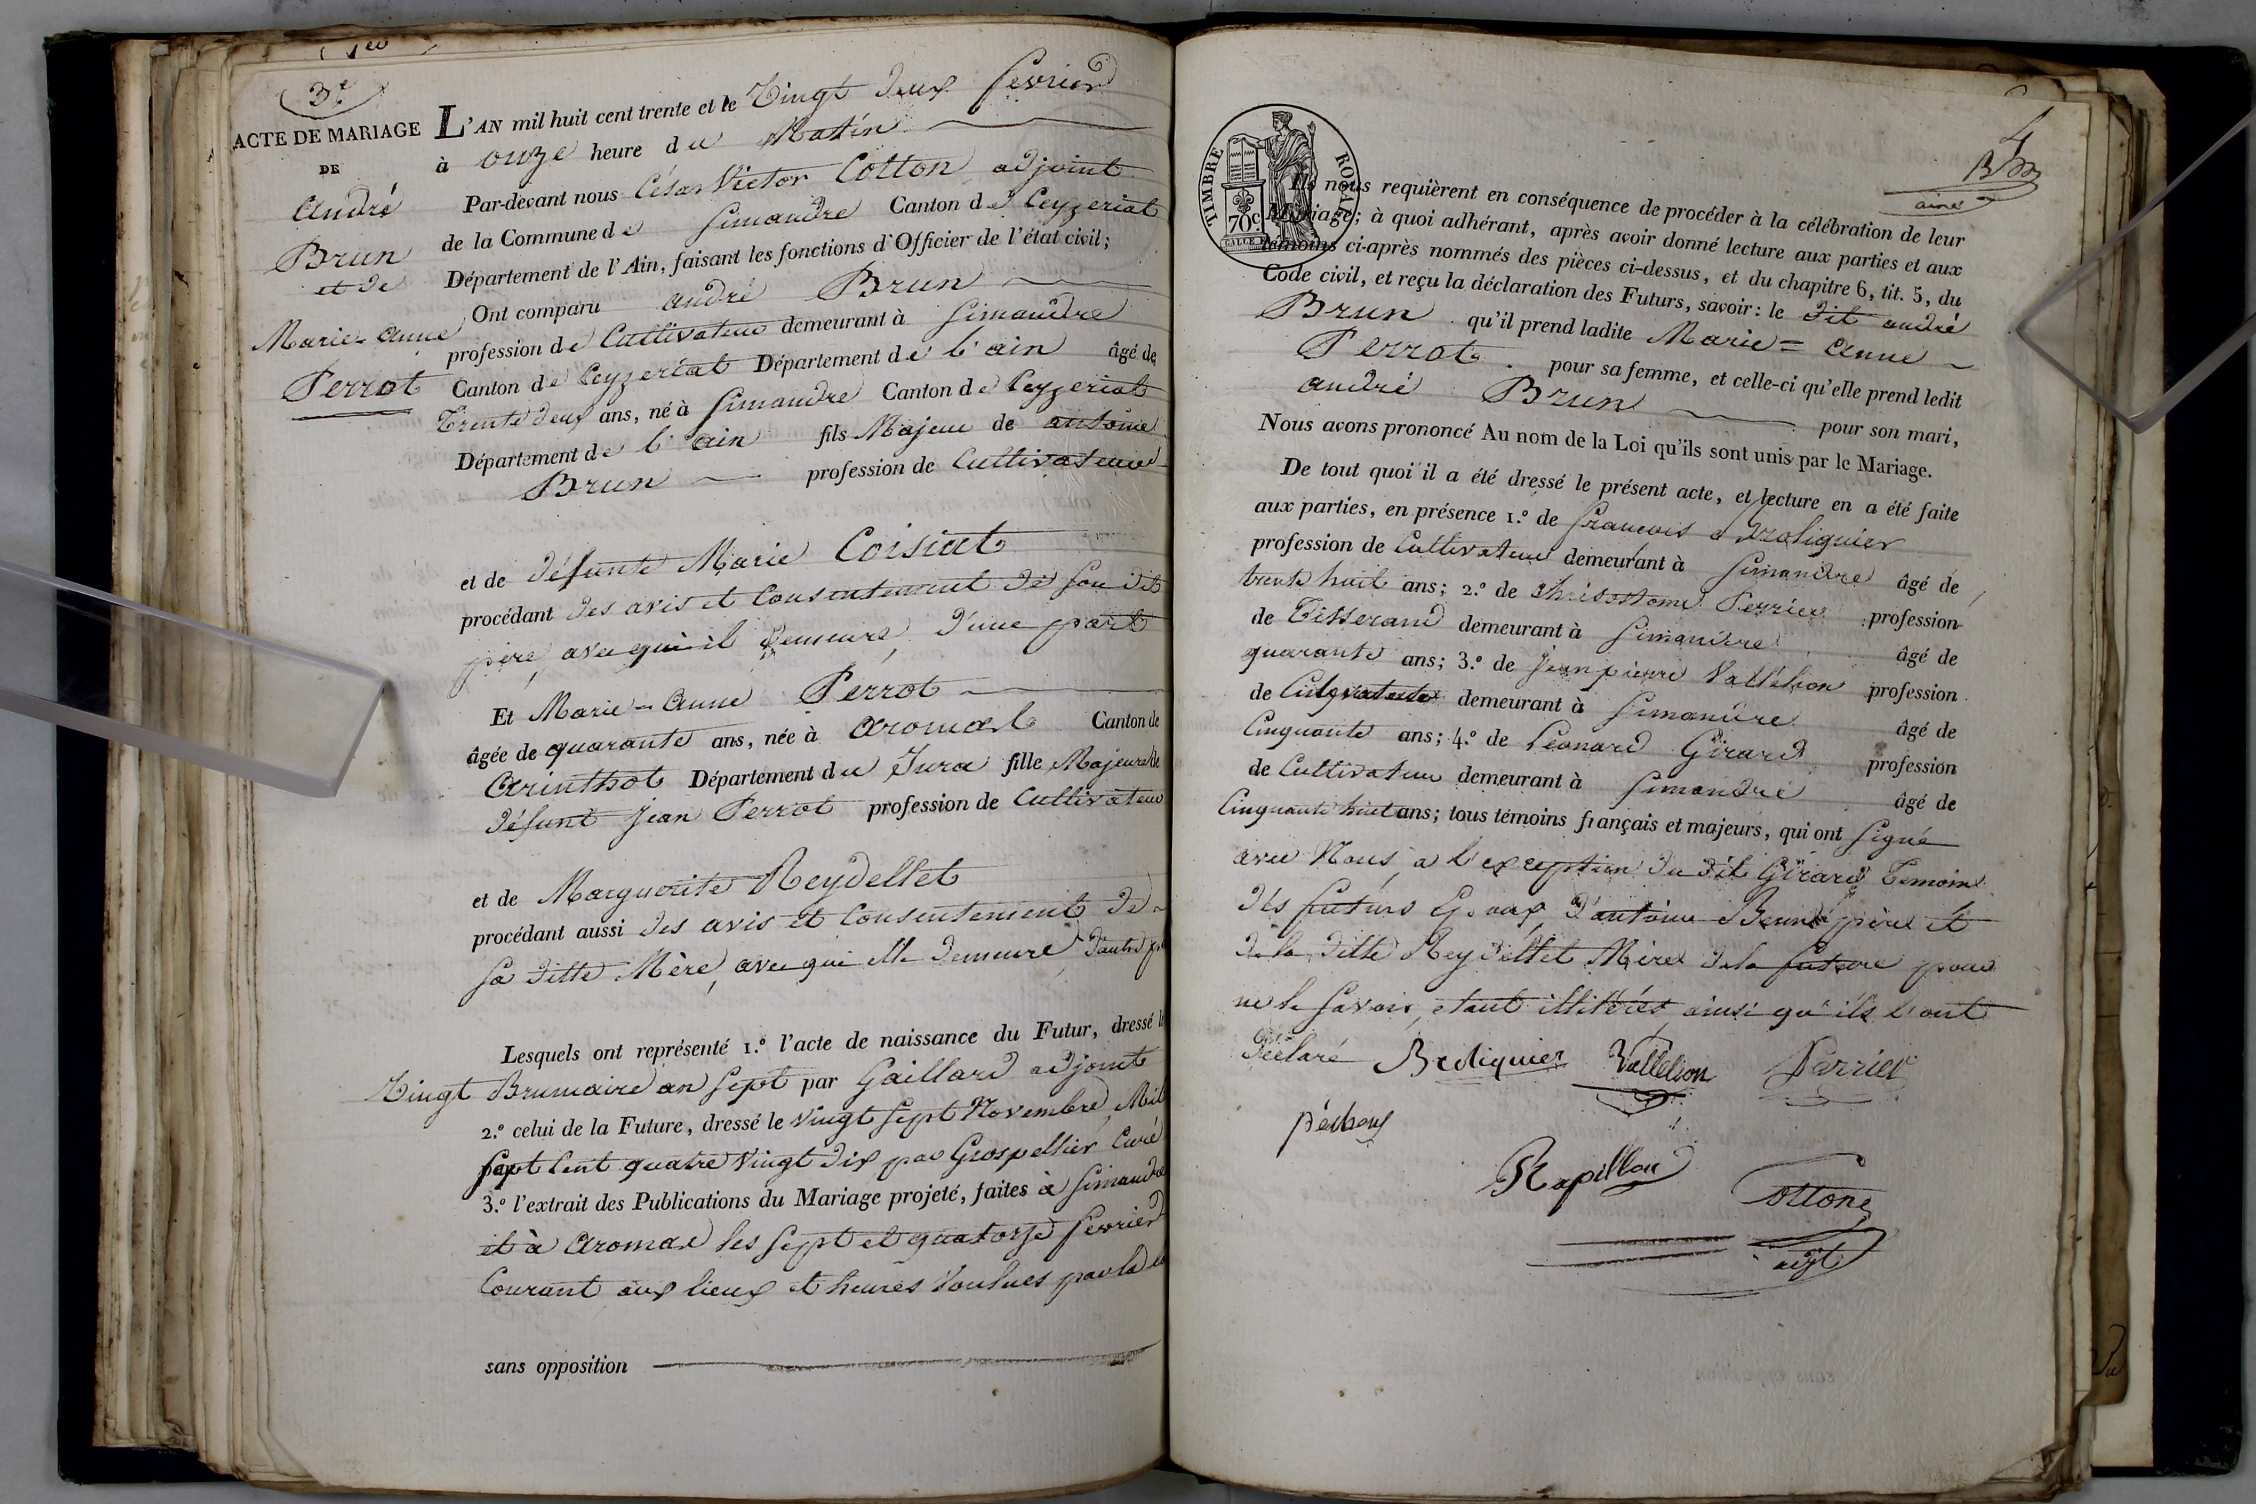 3.e
ACTE DE MARIAGE
DE
André
Brun
et de
Marie-Anne
Perrot
L'AN mil huit cent trente et le Vingt deux fevrier
à onze heure du Matin
Par-devant nous César Victor Cotton adjoint
de la Commune de Simandre Canton de Ceyzeriat
Département de l'Ain, faisant les fonctions d'Officier de l'état civil;
Ont comparu andré Brun
profession de Cultivateur demeurant à Simandre
Canton de Ceyzeriat Département de l'ain âgé de
Trente deux ans, né à Simandre Canton de Ceyzeriat
Département de l'ain fils Majeur de antoine
Brun profession de Cultivateur
et de défunte Marie Coisiat
procédant des avis et Consentement de son dit
père, avec qui il demeure, d'une part
Et Marie-Anne Perrot
âgée de quarante ans, née à aromas Canton de
Arinthot Département du Jura fille Majeure de
défunt Jean Perrot profession de Cultivateur
et de Marguerite Reydellet
procédant aussi des avis et Consentement de
sa ditte Mère, avec qui elle demeure d'autre
Lesquels ont représenté 1.º l'acte de naissance du Futur, dressé le
Vingt Brumaire an sept par Gaillard adjoint
2.º celui de la Future, dressé le vingt sept Novembre, Mil
sept Cent quatre vingt dix par Grospellier Curé
3.º l'extrait des Publications du Mariage projeté, faites à Simandre
et à Aromas les sept et quatorze fevrier
Courant aux lieux et heures Voulues par la
sans opposition
4
TIMBRE ROYAL
70c
Ils nous requièrent en conséquence de procéder à la célébration de leur
Mariage; à quoi adhérant, après avoir donné lecture aux parties et aux
témoins ci-après nommés des pièces ci-dessus, et du chapitre 6, tit. 5, du
Code civil, et reçu la déclaration des Futurs, savoir: le dit andré
Brun qu'il prend ladite Marie=Anne
Perrot pour sa femme, et celle-ci qu'elle prend ledit
andré Brun pour son mari,
Nous avons prononcé Au nom de la Loi qu'ils sont unis par le Mariage.
De tout quoi il a été dressé le présent acte, et lecture en a été faite
aux parties, en présence 1.º de francois
profession de Cultivateur demeurant à Simandre âgé de
trente huit ans; 2.º de Perrier profession
de Tisserand demeurant à Simandre âgé de
quarante ans; 3.º de Jean pierre Vallelion profession
de Cultivateur demeurant à Simandre âgé de
Cinquante ans; 4.º de Léonard Girard profession
de Cultivateur demeurant à Simandre âgé de
Cinquante huit ans; tous témoins français et majeurs, qui ont signé
avec Nous, a l'exception du dit Girard Temoin
des futurs Epoux, d'antoine Brun père et
de la ditte Reydellet Mère de la future pour
ne le savoir, etant illitérés ainsi qu'ils l'ont
déclaré Brotiquier Vallelion Perrier
Rapillon Cottone
adjt